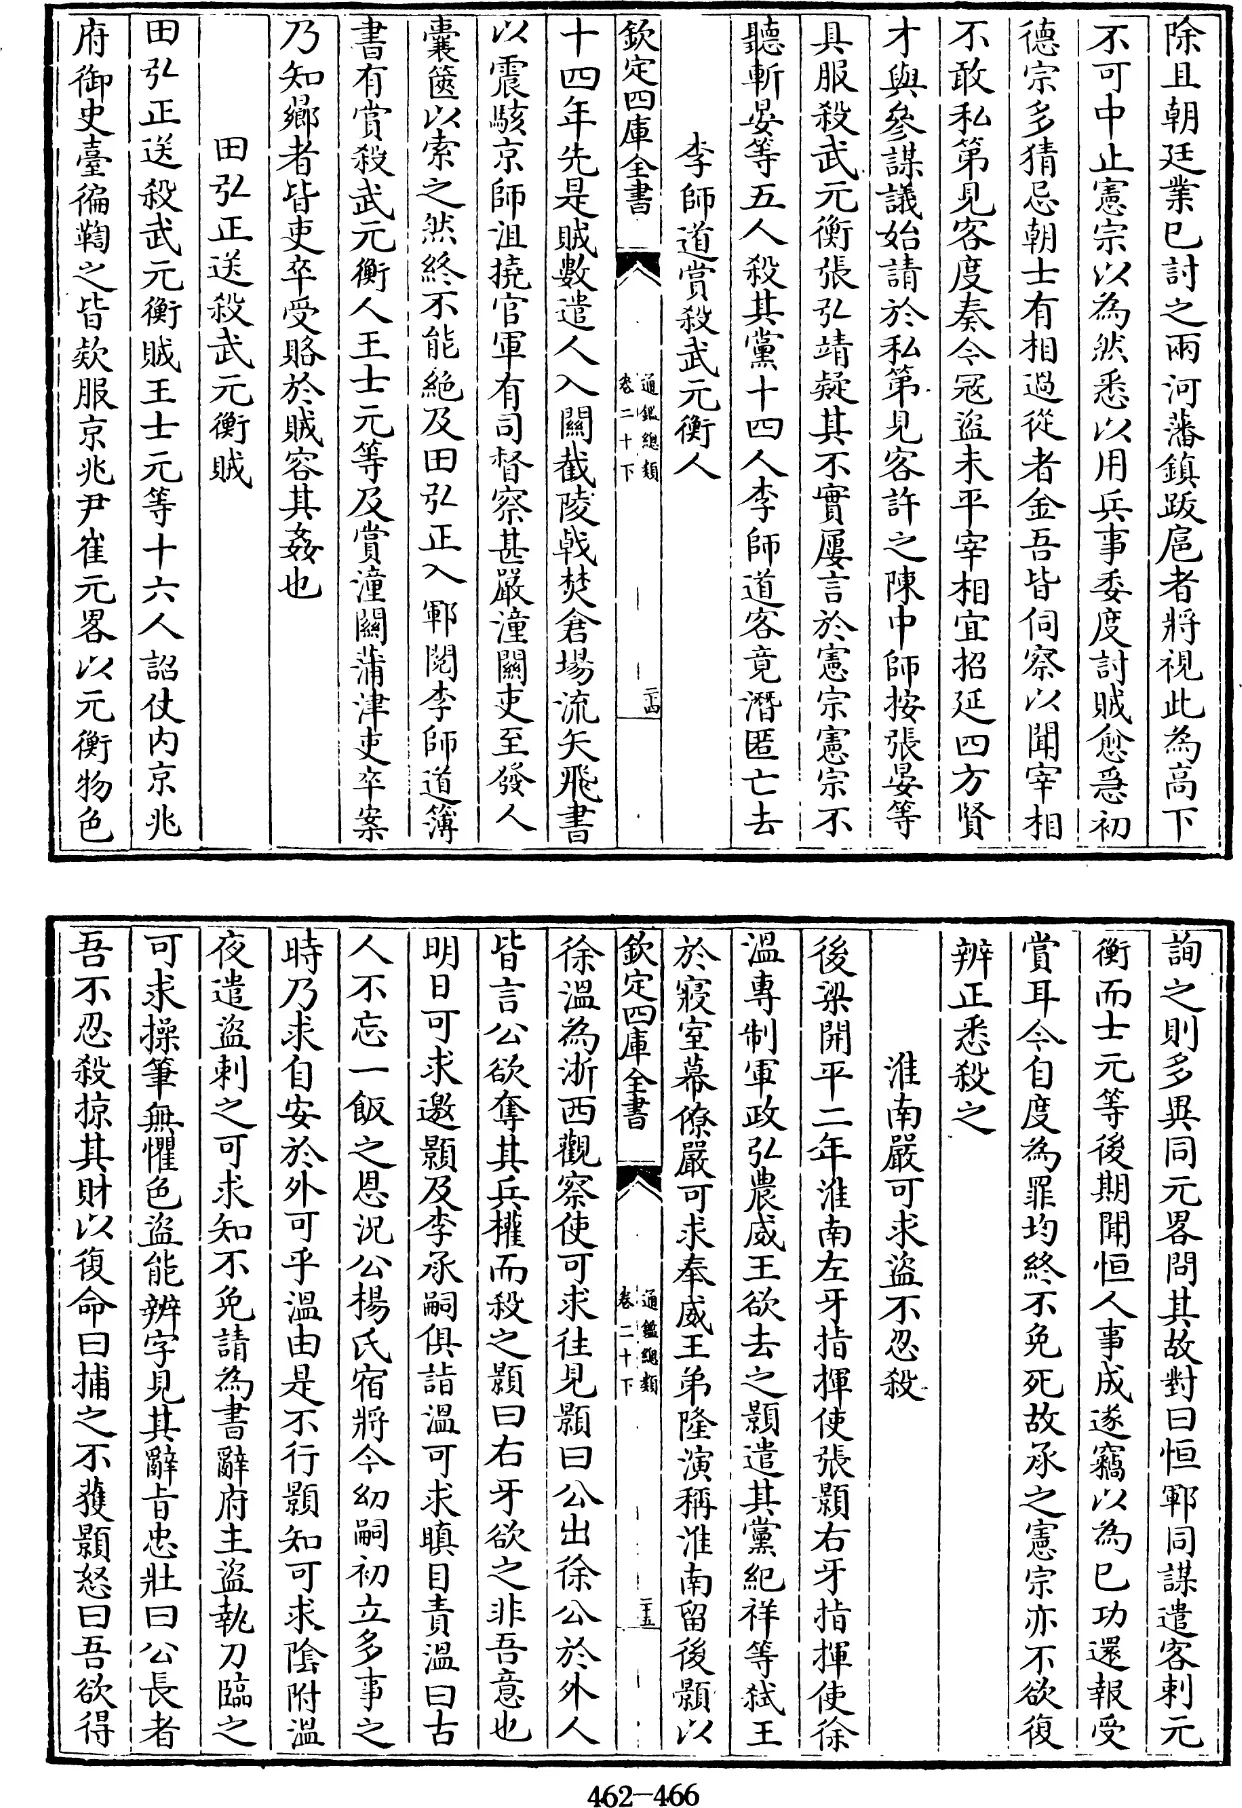 除且朝廷業已討之兩河藩鎮跋扈者將視此為高下
不可中止憲宗以為然悉以用兵事委度討賊愈急初
德宗多猜忌朝士有相過從者金吾皆伺察以聞宰相
不敢私第見客度奏今冦盜未平宰相宜招延四方賢
才與參謀議始請於私第見客許之陳中師按張晏等
具服殺武元衡張弘靖疑其不實屢言於憲宗憲宗不
聽斬晏等五人殺其黨十四人李師道客竟潛匿亡去
李師道賞殺武元衡人
欽定四庫全書
通鑑總類
卷二十下
二十四
十四年先是賊數遣人入關截陵戟焚倉場流矢飛書
以震駭京師沮撓官軍有司督察甚嚴潼關吏至發人
囊篋以索之然終不能絶及田弘正入鄆閲李師道簿
書有賞殺武元衡人王士元等及賞潼關蒲津吏卒案
乃知曏者皆吏卒受賂於賊容其姦也
田弘正送殺武元衡賊
田弘正送殺武元衡賊王士元等十六人詔仗内京兆
府御史臺徧鞫之皆欵服京兆尹崔元畧以元衡物色
詢之則多異同元畧問其故對曰恒鄆同謀遣客刺元
衡而士元等後期聞恒人事成遂竊以為已功還報受
賞耳今自度為罪均終不免死故承之憲宗亦不欲復
辨正悉殺之
淮南嚴可求盜不忍殺
後梁開平二年淮南左牙指揮使張顥右牙指揮使徐
溫專制軍政弘農威王欲去之顥遣其黨紀祥等弑王
於寢室幕僚嚴可求奉威王弟隆演稱淮南留後顥以
欽定四庫全書
通鑑總類
卷二十下
二十五
徐溫為浙西觀察使可求往見顥曰公出徐公於外人
皆言公欲奪其兵權而殺之顥曰右牙欲之非吾意也
明日可求邀顥及李承嗣俱詣溫可求瞋目責溫曰古
人不忘一飯之恩況公楊氏宿將今幼嗣初立多事之
時乃求自安於外可乎溫由是不行顥知可求陰附溫
夜遣盜刺之可求知不免請為書辭府主盜執刀臨之
可求操筆無懼色盜能辨字見其辭旨忠壯曰公長者
吾不忍殺掠其財以復命曰捕之不獲顥怒曰吾欲得
462-466